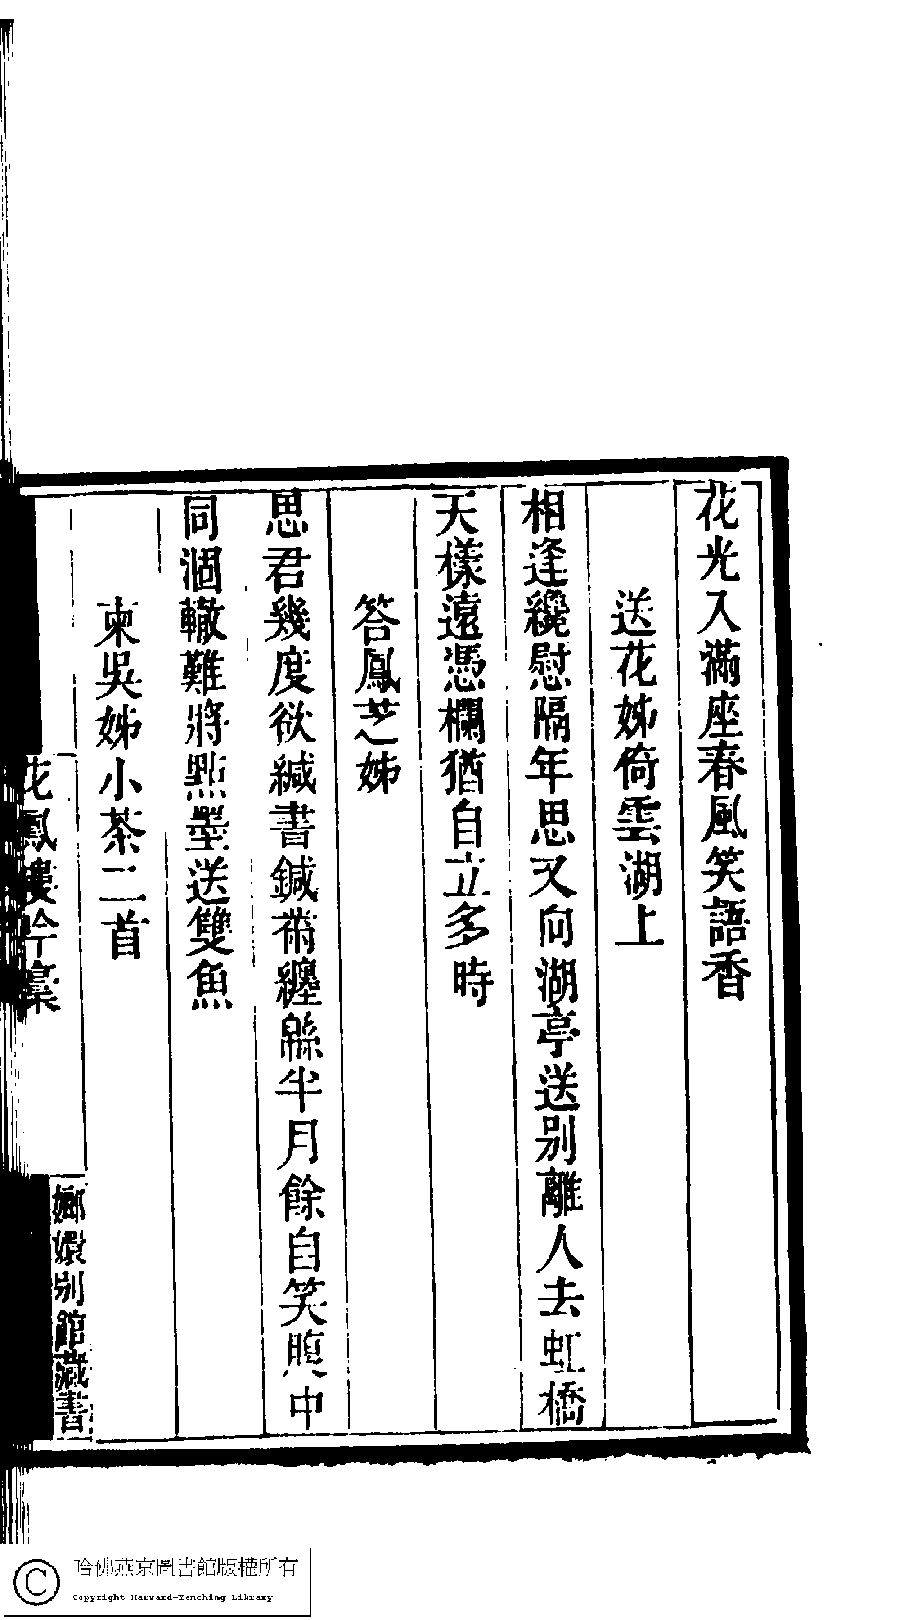 花光入滿座春風笑語香
送花姊倚雲湖上
相逢纔慰隔年思又向湖亭送別離人去虹橋
天樣遠憑欄猶自立多時
答鳳芝姊
思君幾度欲緘書鍼黹纏緜半月餘自笑腹中
同涸轍難將點墨送雙魚
柬吳姊小茶二首
花鳳樓吟稾
嫏嬛別館藏書
哈佛燕京圖書館版權所有
Copyright Harvard-Yenching Library